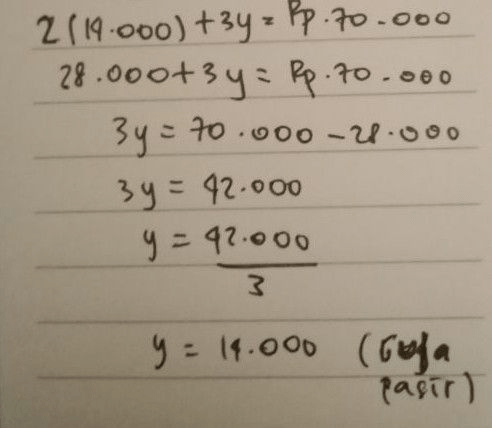 2(14.000) + 3y = Rp.70.000
28.000 + 3y = Rp.70.000
3y = 70.000 - 28.000
3y = 42.000
y = 42.000
3
y = 14.000 (Gula
pasir)